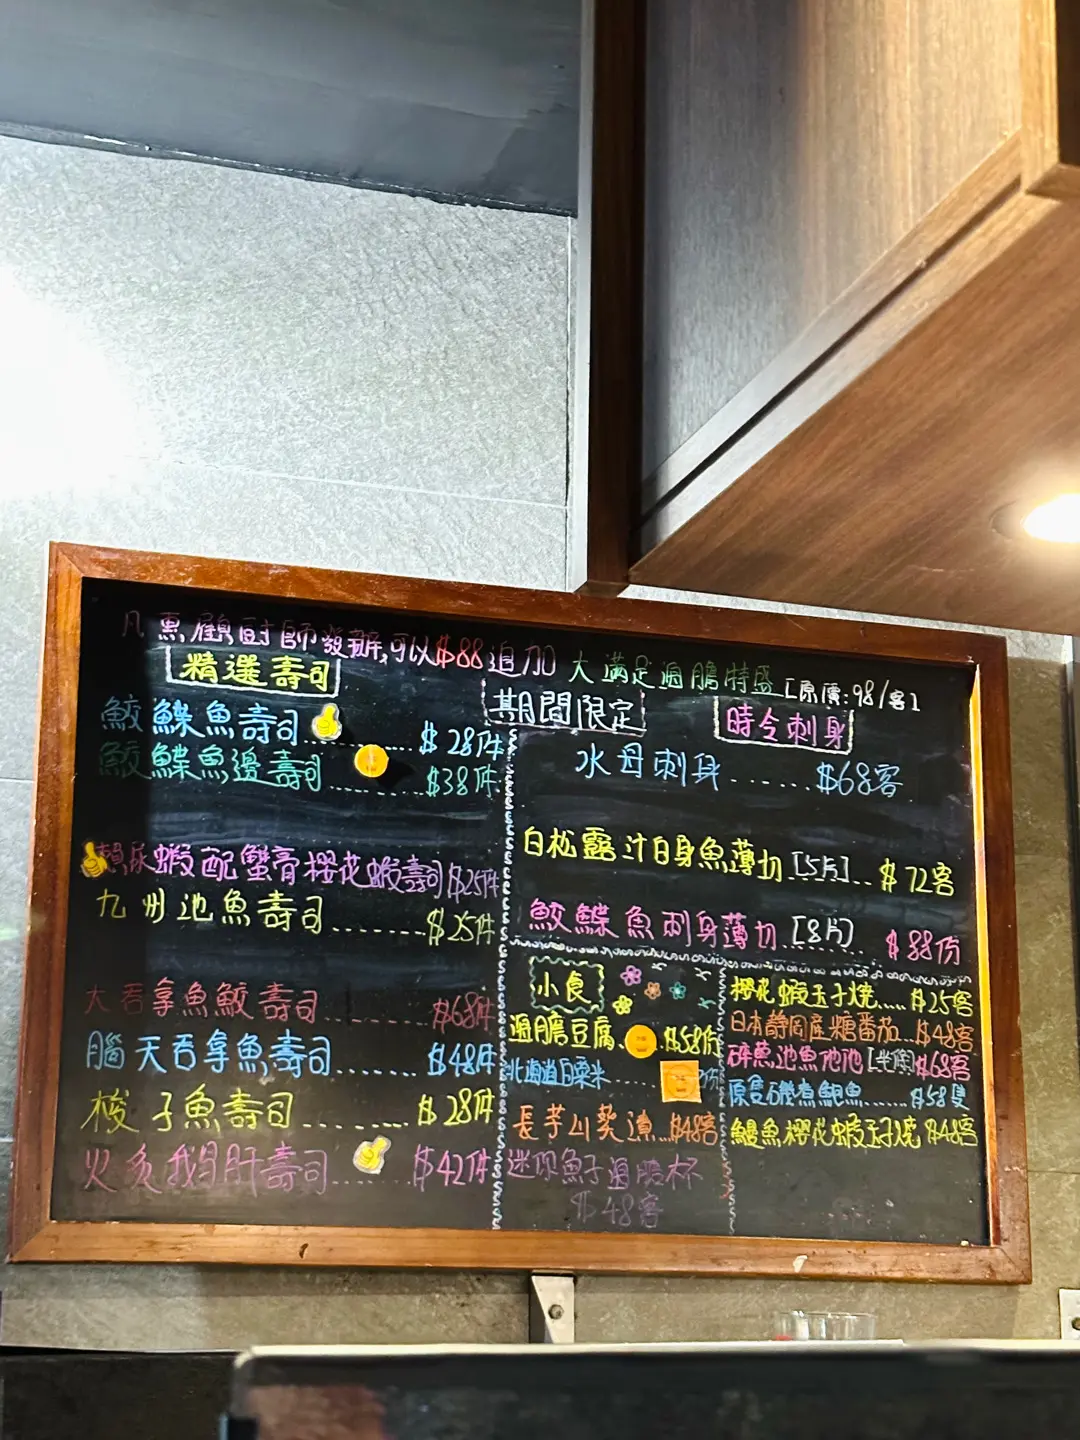 凡惠顧廚師發辦,可以$88追加 大滿足海膽特盛 [原價:98/客]
精選壽司
鮫鰈魚壽司........ $28件
鮫鰈魚邊壽司........ $38件
賴尿蝦配蟹膏櫻花蝦壽司 $25件
九州池魚壽司....... $25件
大吞拿魚鮫壽司....... $68件
腦天吞拿魚壽司...... $48件
梭子魚壽司........ $28件
火炙鵝肝壽司....... $42件
期間限定
時令刺身
水母刺身...... $68客
白松露汁白身魚薄切[5片].. $72客
鮫鰈魚刺身薄切[8片].. $88份
小食
海膽豆腐 $58份
北海道白粟米...... 份
長芋山葵漬 $48客
迷你魚子海膽杯
$48客
櫻花蝦玉子燒.... $25客
日本靜岡產糖番茄... $48客
碎蔥池魚池池[半條]$68客
原隻磯煮鮑魚...... $58隻
鰻魚櫻花蝦玉子燒 $48客